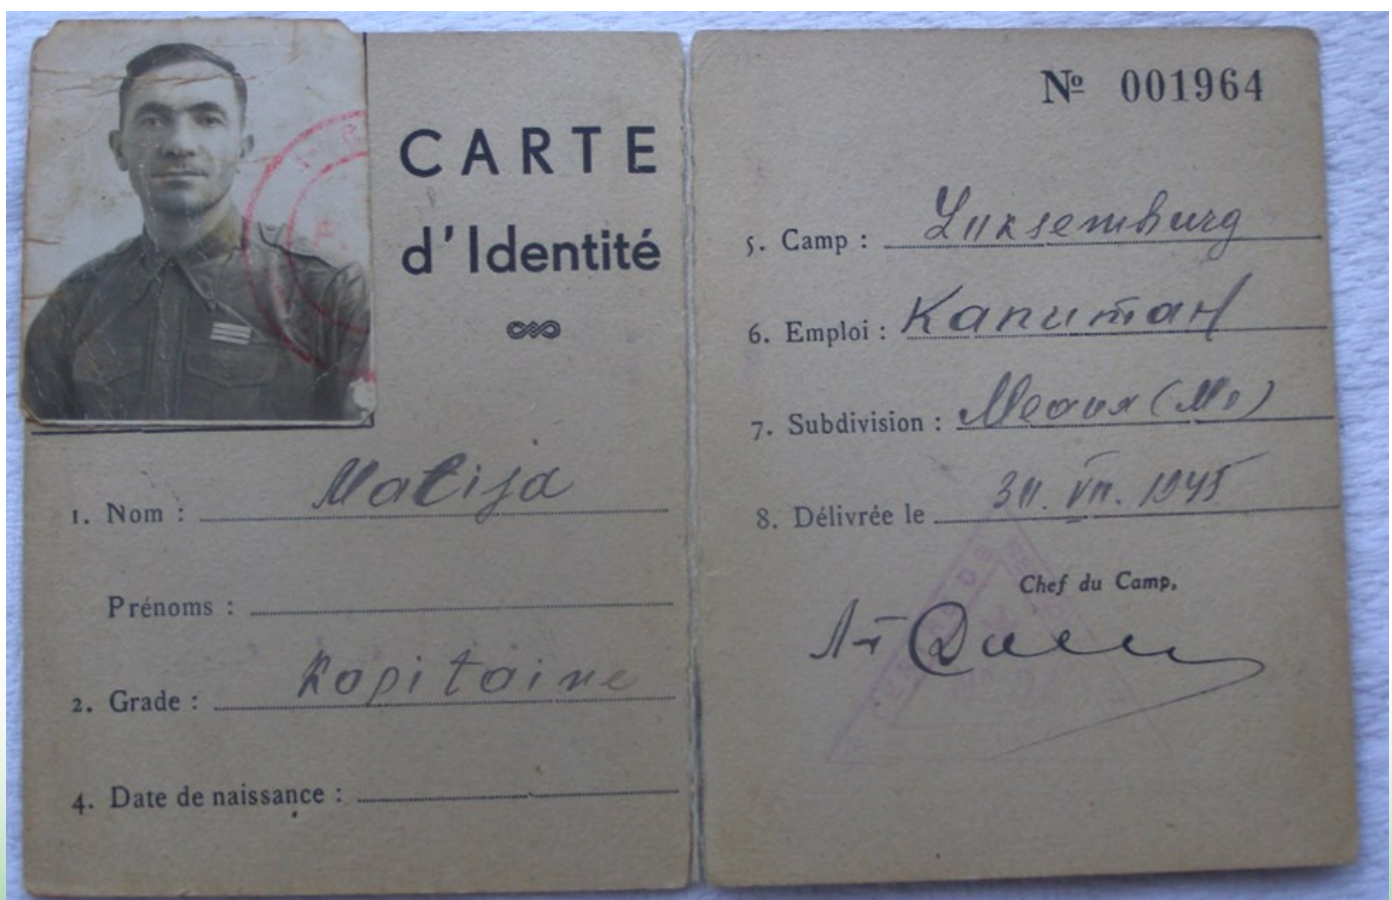 CARTE
d'Identité
1. Nom : Matija
Prénoms :
2. Grade : Kapitaine
4. Date de naissance :
Nº 001964
5. Camp : Luksemburg
6. Emploi : Капитан
7. Subdivision :
8. Délivrée le VII. 1945
Chef du Camp,